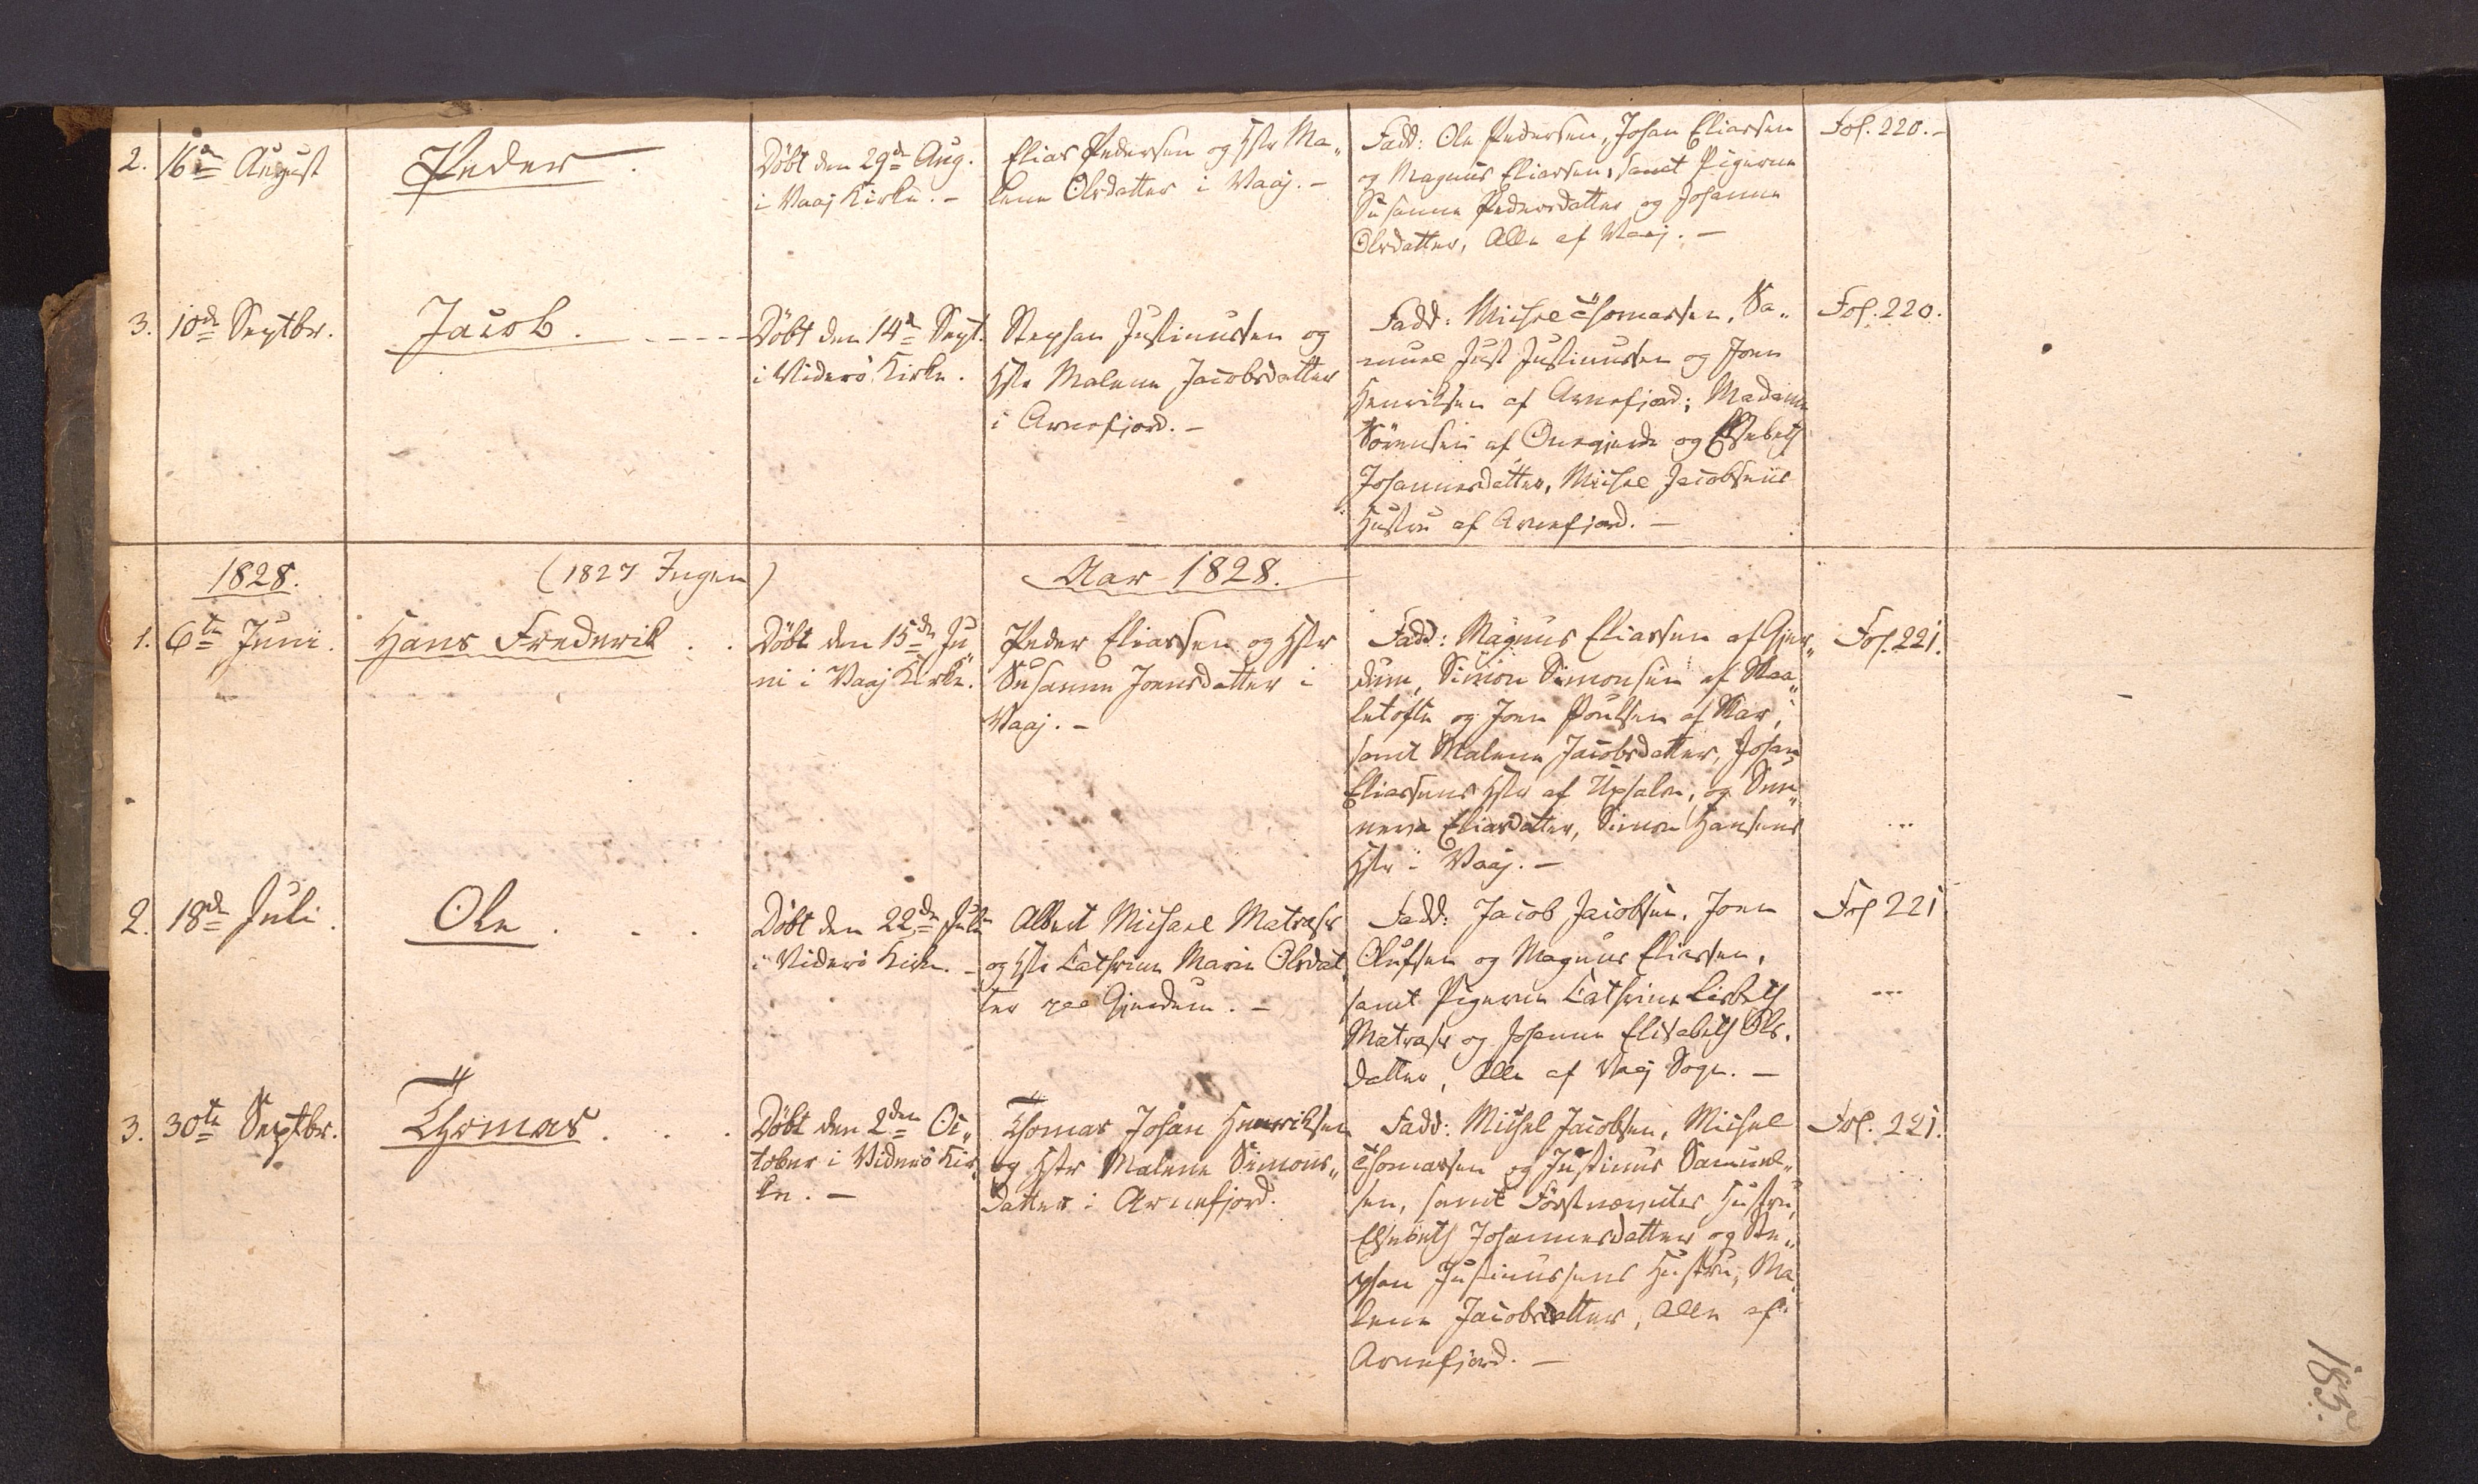 2. 16de August
Peder.
Döbt den 29de Aug.
i Vaaj Kirke. -
Elias Pedersen og Hstr Ma„
lene Olsdatter i Vaaj. -
Fadd: Ole Pedersen, Johan Eliassen
og Magnus Eliassen, samt Pigerne
Susanne Pedersdatter og Johanne
Olsdatter, Alle af Vaaj. -
Fol. 220. -
3. 10de Septbr.
Jacob.
Döbt den 14de Sept.
i Viderö Kirke.
Stephan Justinussen og
Hstr Malene Jacobsdatter
i Arnefjord. -
Fadd: Michel Thomassen, Sa„
muel Just Justinussen og Joen
Henriksen af Arnefjord; Madame
Sörensen af Onegjerde og Elsebeth
Johannesdatter, Michel Jacobsens
Hustru af Arnefjord. -
Fol. 220.
1828.
(1827 Ingen)
Aar 1828.
1. 6te Juni.
Hans Frederik . .
Döbt den 15de Ju„
ni i Vaaj Kirke.
Peder Eliassen og Hstr
Susanne Joensdatter i
Vaaj. -
Fadd: Magnus Eliassen af Gjer„
dum, Simon Simonsen af Skaa„
letofte og Joen Poulsen af Skar,
samt Malene Jacobsdatter, Johan
Eliassens Hstr af Upsalen, og Sun„
neva Eliasdatter, Simon Hansens
Hstr i Vaaj. -
Fol. 221.
2. 18de Juli.
Ole . . .
Döbt den 22de Juli
i Viderö Kirke. -
Albert Michael Matrass
og Hstr Cathrine Marie Olsdat
ter paa Gjerdum. -
Fadd: Jacob Jacobsen, Joen
Olufsen og Magnus Eliassen,
samt Pigerne Cathrine Lisbeth
Matrass og Johanne Elisabeth Ols„
datter, Alle af Vaaj Sogn. -
Fol 221
3. 30te Septbr.
Thomas . . .
Döbt den 2den Oc„
tober i Viderö Kir„
ke. -
Thomas Johan Henriksen
og Hstr Malene Simons„
datter i Arnefjord.
Fadd: Michel Jacobsen, Michel
Thomassen og Justinus Samuel„
sen, samt Förstnævntes Hustru,
Elsebeth Johannesdatter og Ste„
phan Justinussens Hustru, Ma„
lene Jacobsdatter, Alle af
Arnefjord. -
Fol. 221.
185.